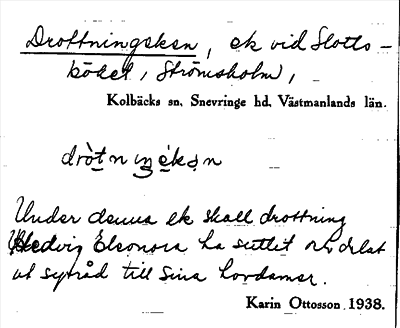 Drottningeken, ek vid Slotts-
köket, Strömsholm,
Kolbäcks sn, Snevringe hd, Västmanlands län.
dròtnıŋèkən
Under denna ek skall drottning
Hedvig Eleonora ha suttit och delat
ut sytråd till sina hovdamer.
Karin Ottosson 1938.